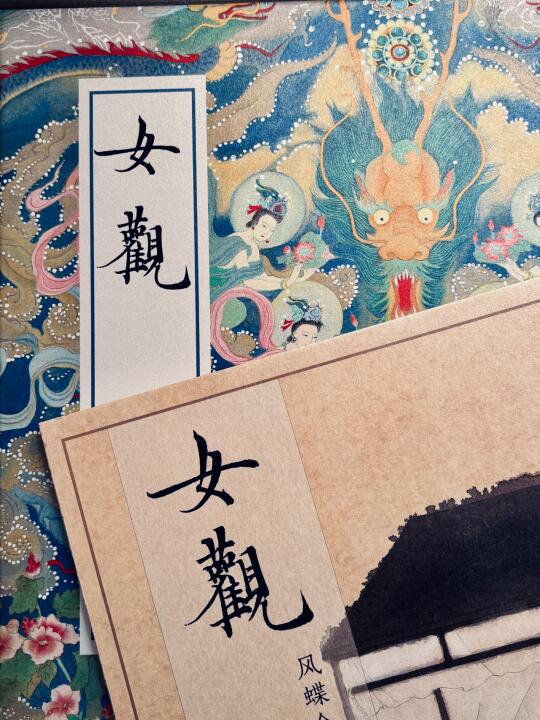 女觀
女觀
风蝶